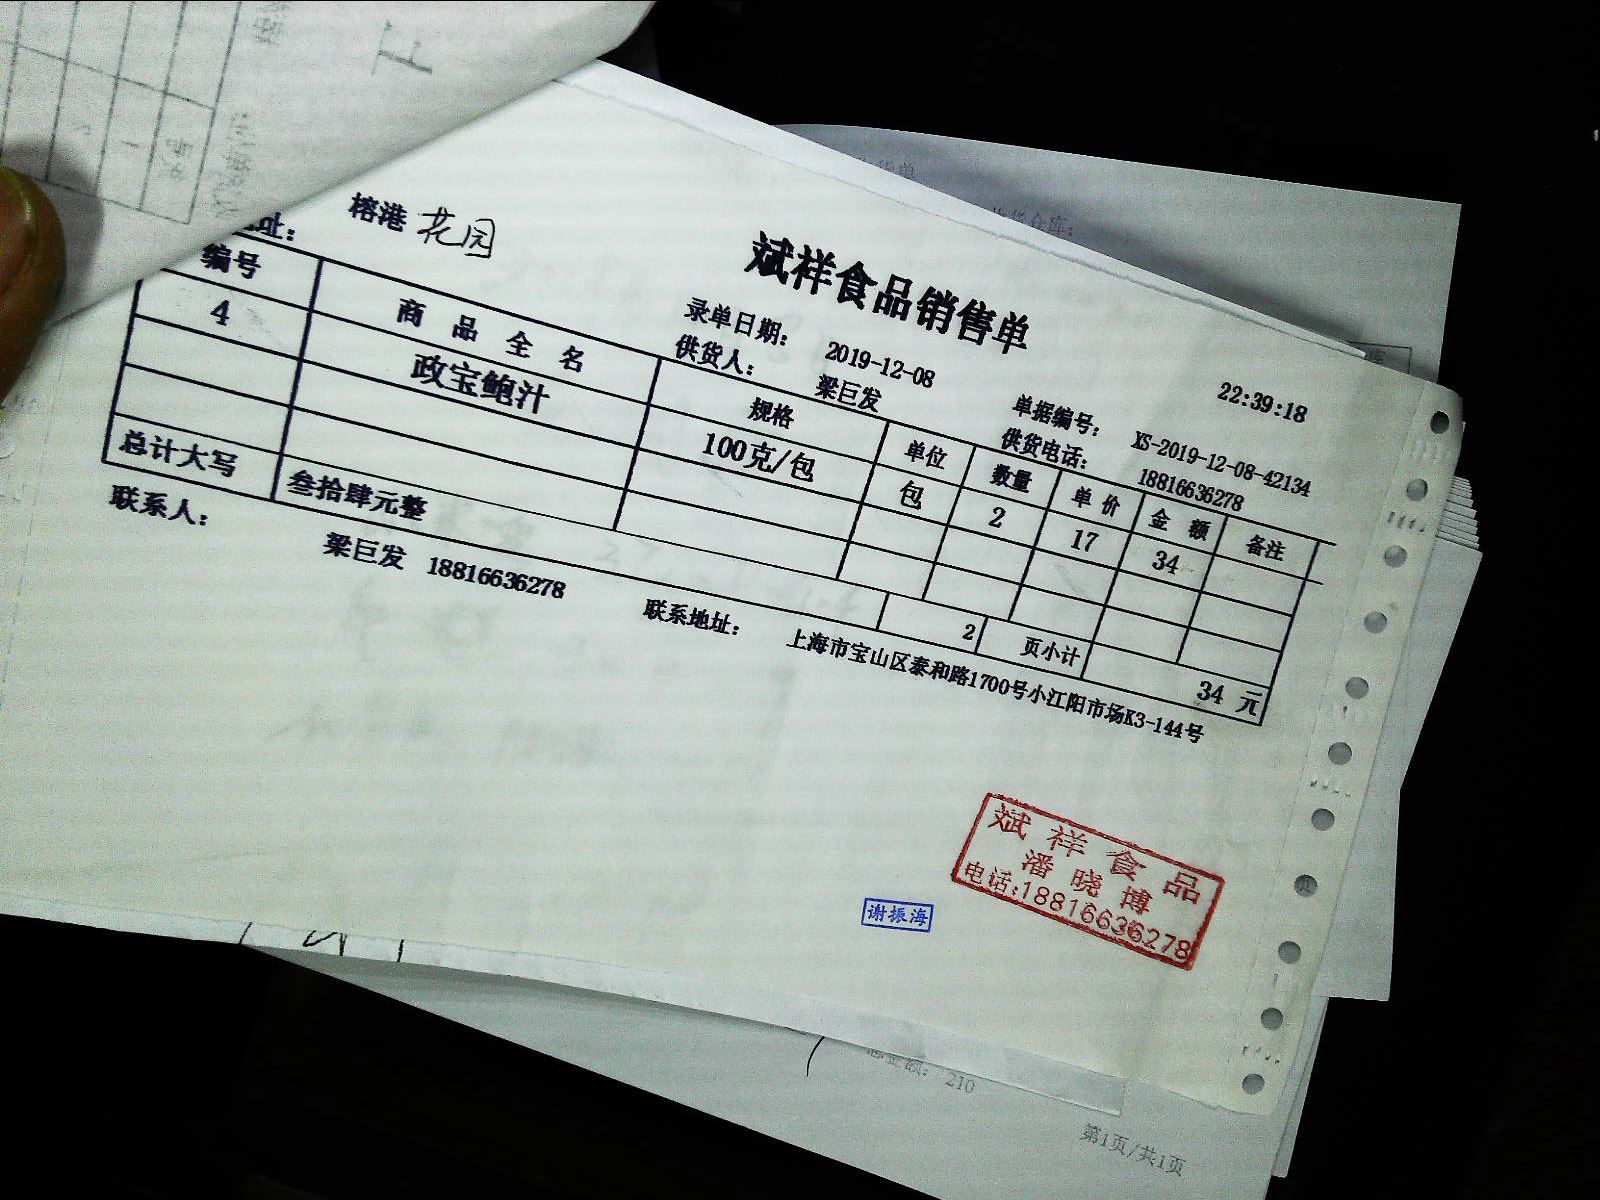 斌祥食品销售单
22:39:18
录单日期： 2019-12-08 单据编号： XS-2019-12-08-42134
址： 榕港 花园 供货人： 梁巨发 供货电话： 18816636278
编号 商品全名 规格 单位 数量 单价 金额 备注
4 政宝鲍汁 100克/包 包 2 17 34
总计大写 叁拾肆元整 2 页小计 34 元
联系人： 梁巨发 18816636278 联系地址： 上海市宝山区泰和路1700号小江阳市场K3-144号
斌祥食品
潘晓博
电话:18816636278
谢振海
210
第1页/共1页